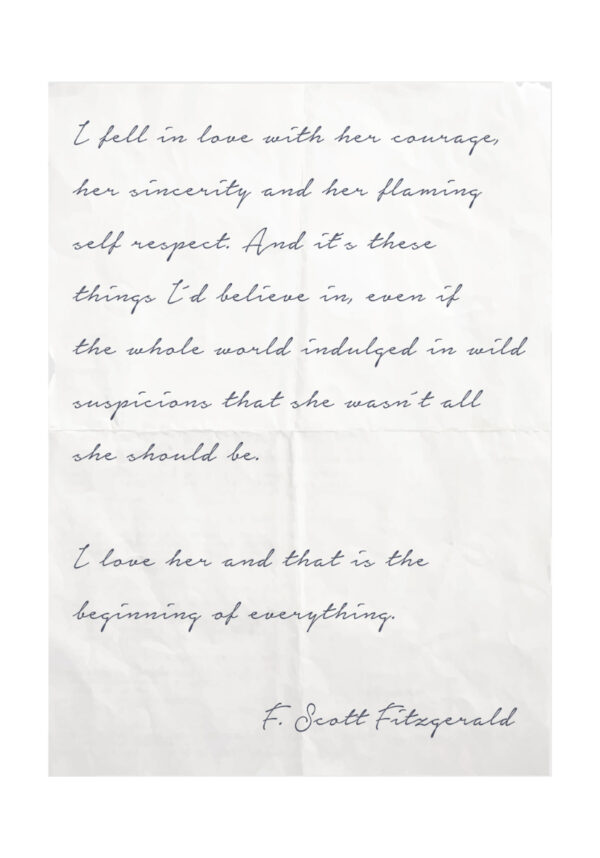 I fell in love with her courage,
her sincerity and her flaming
self respect. And it's these
things I'd believe in, even if
the whole world indulged in wild
suspicions that she wasn't all
she should be.
I love her and that is the
beginning of everything.
F. Scott Fitzgerald